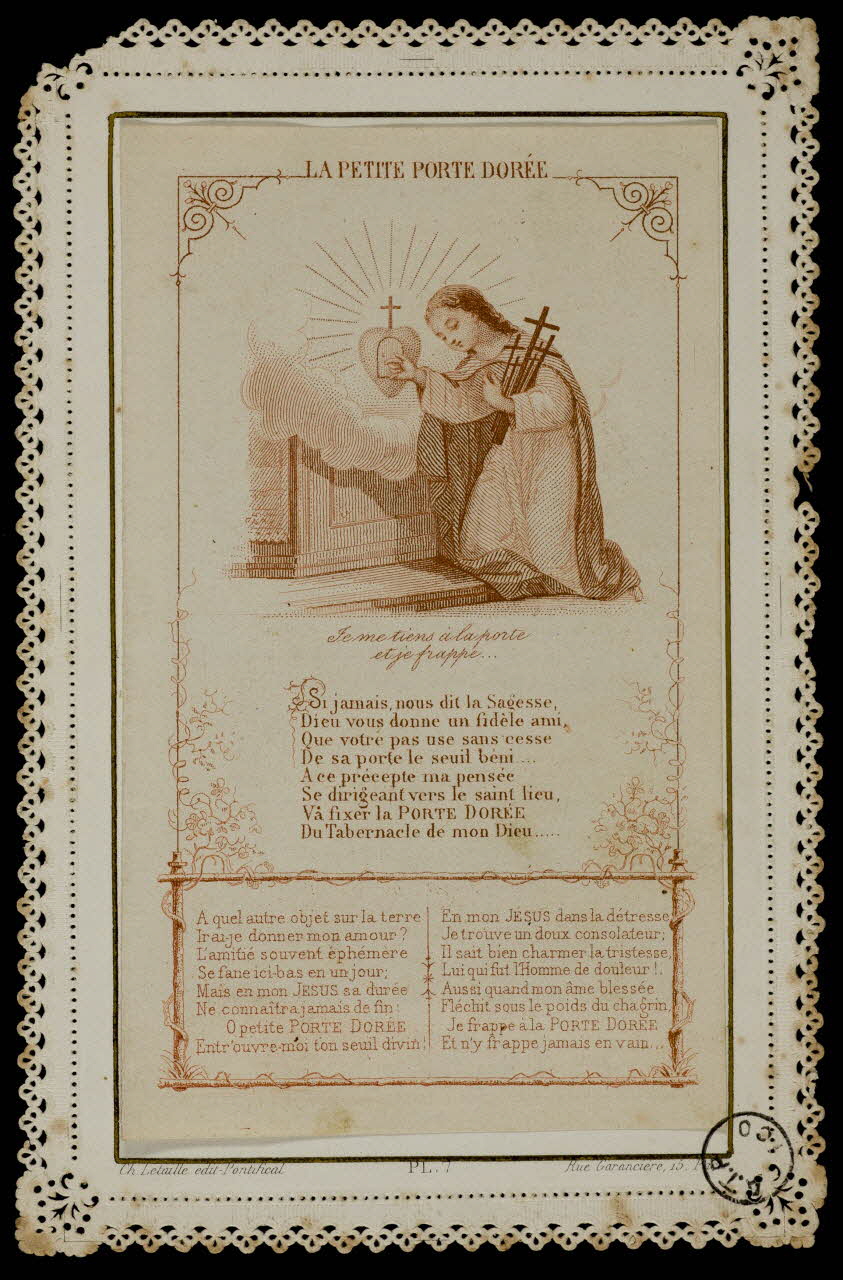 LA PETITE PORTE DORÉE
Je me tiens à la porte
et je frappe...
Si jamais, nous dit la Sagesse,
Dieu vous donne un fidèle ami,
Que votre pas use sans cesse
De sa porte le seuil béni....
A ce précepte ma pensée
Se dirigeant vers le saint lieu,
Va fixer la PORTE DORÉE
Du Tabernacle de mon Dieu.....
A quel autre objet sur la terre
Irai-je donner mon amour?
L'amitié souvent éphémère
Se fane ici-bas en un jour;
Mais en mon JESUS sa durée
Ne connaîtra jamais de fin:
O petite PORTE DORÉE
Entr'ouvre-moi ton seuil divin!
En mon JESUS dans la détresse
Je trouve un doux consolateur;
Il sait bien charmer la tristesse,
Lui qui fut l'Homme de douleur!.
Aussi quand mon âme blessée
Fléchit sous le poids du chagrin,
Je frappe à la PORTE DORÉE
Et n'y frappe jamais en vain...
Ch. Letaille edit-Pontifical
PL. 7
Rue Garancière, 15.